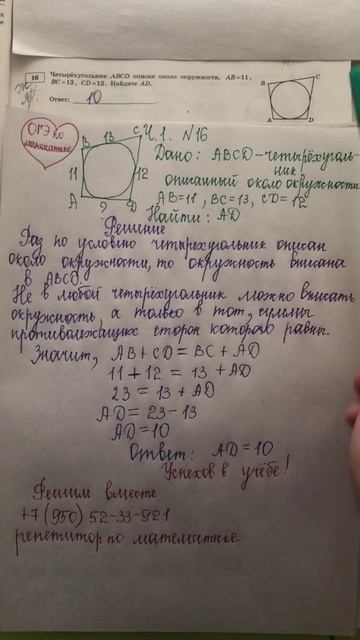 16
Четырёхугольник ABCD описан около окружности, AB=11,
BC=13, CD=12. Найдите AD.
Ответ: 10
B
C
A
D
ОГЭ по
математике
Ч.1. N16
B 13 C
11
12
A ? D
Дано: ABCD-четырёхуголь-
ник
описанный около окружности
AB=11, BC=13, CD=12
Найти: AD
Решение
Раз по условию четырёхугольник описан
около окружности, то окружность вписана
в ABCD.
Не в любой четырёхугольник можно вписать
окружность, а только в тот, суммы
противолежащих сторон которого равны.
Значит, AB+CD=BC+AD
11+12=13+AD
23=13+AD
AD=23-13
AD=10
Ответ: AD=10
Успехов в учёбе!
Решим вместе
+7(950) 52-33-921
репетитор по математике